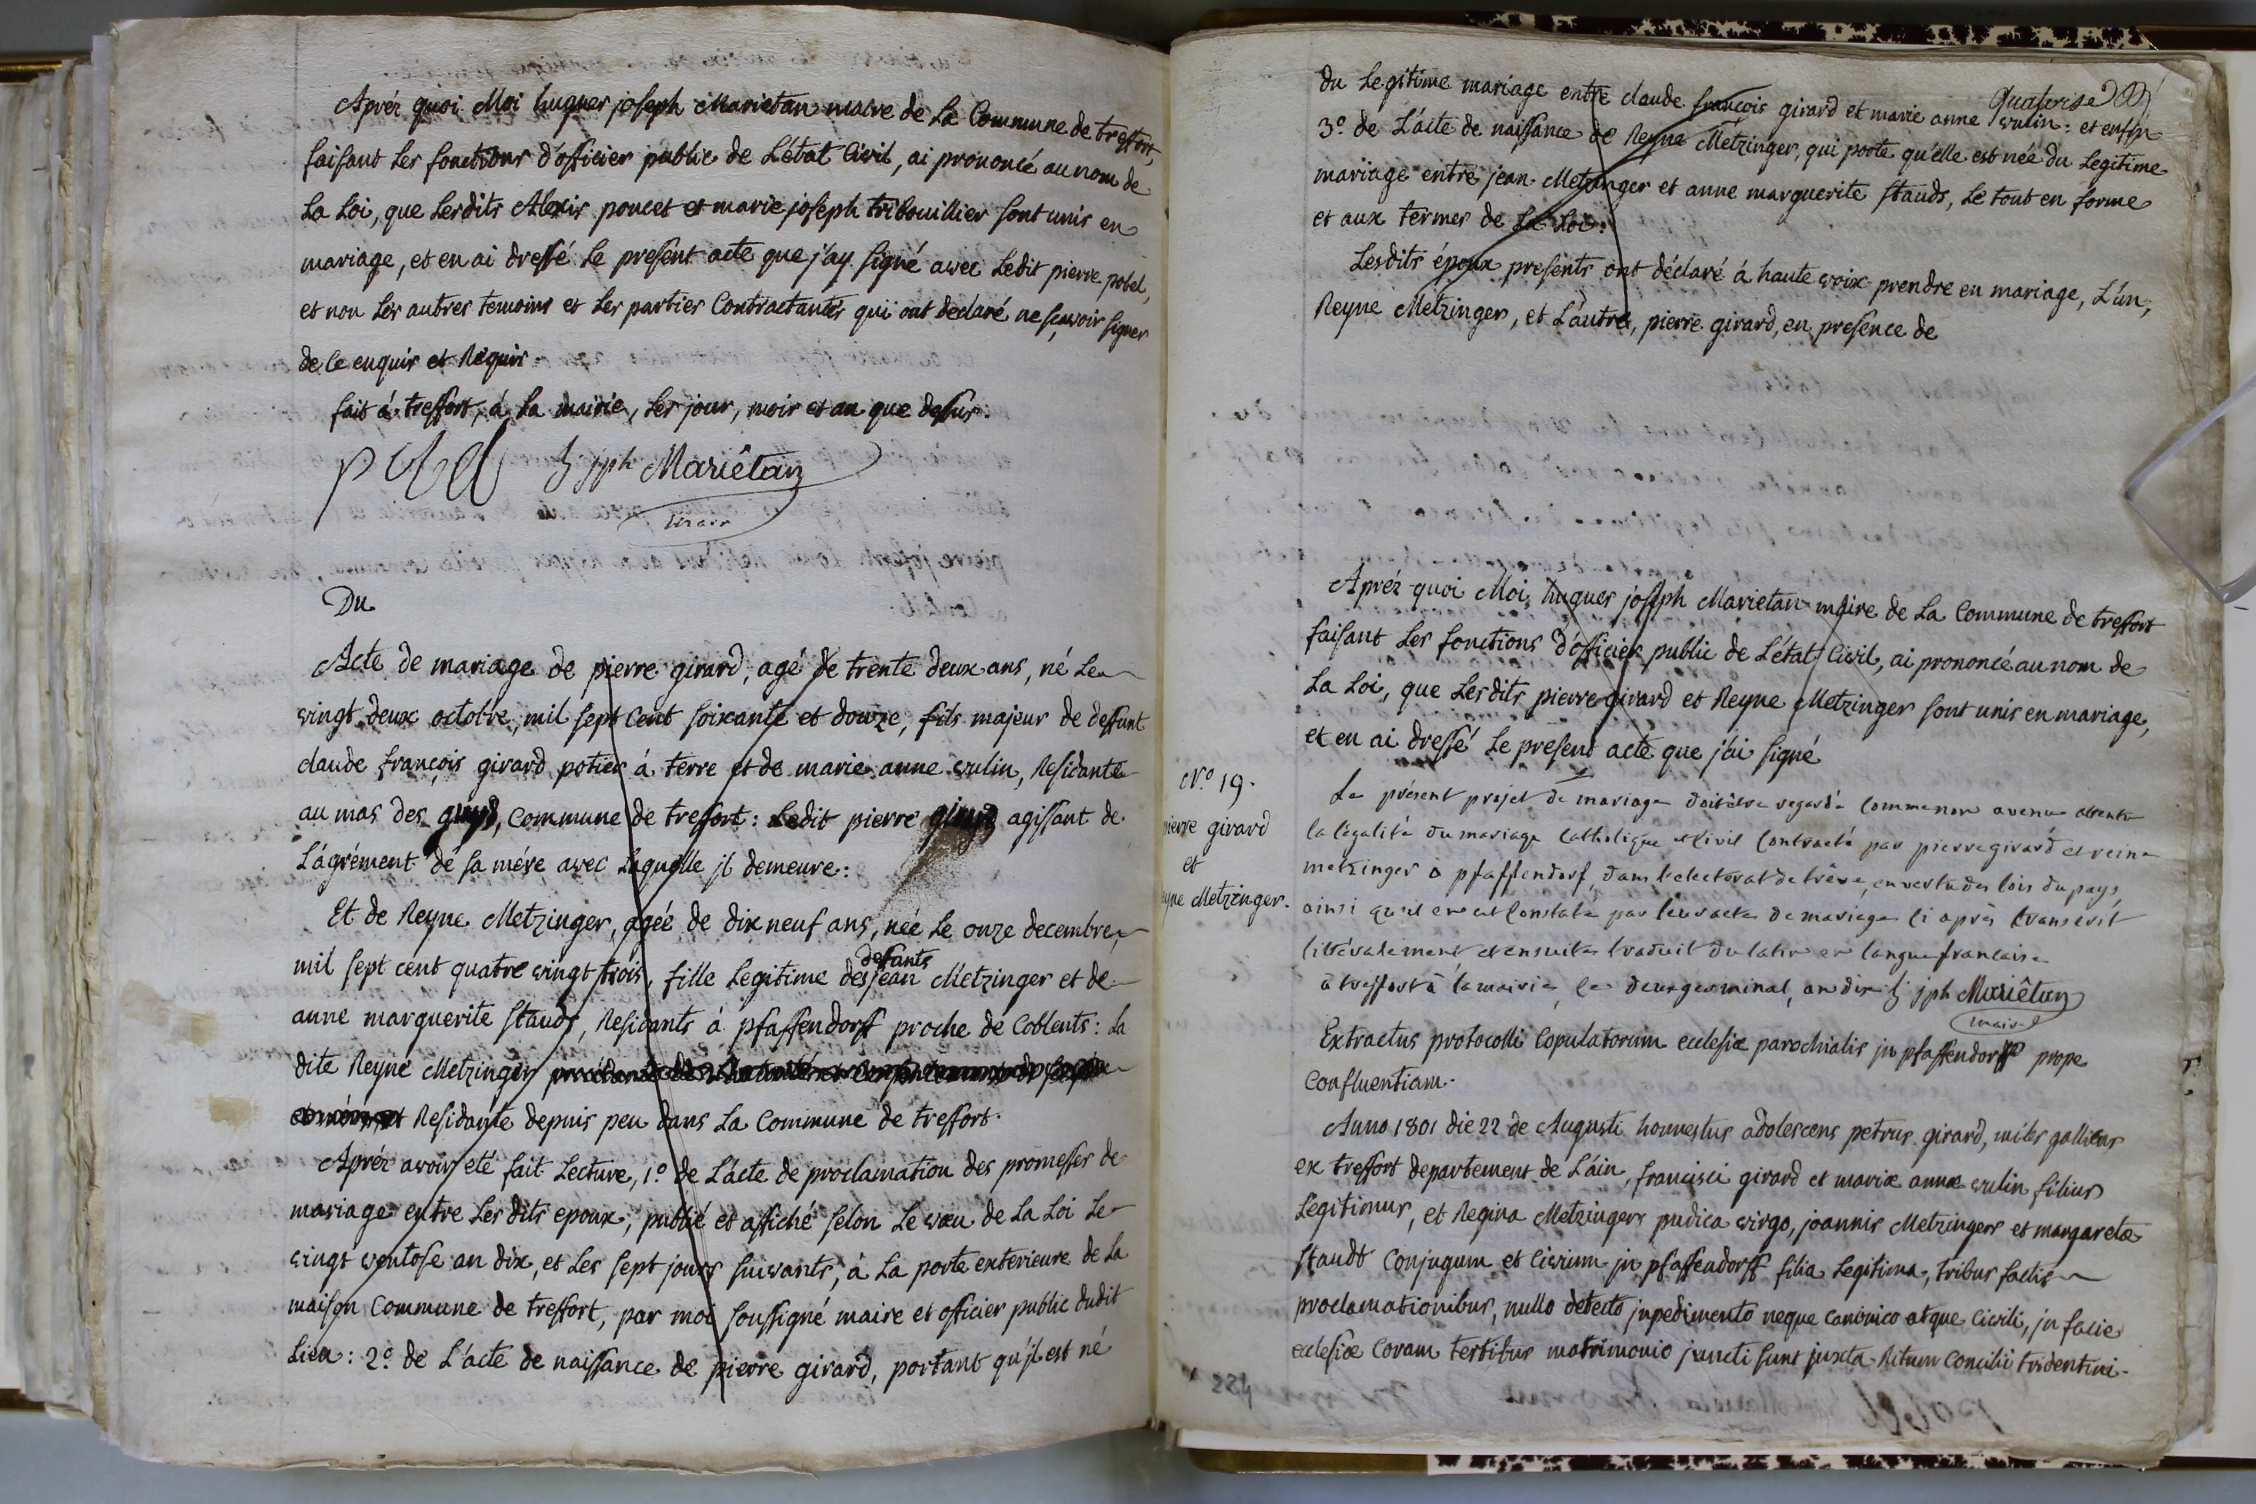 Aprés quoi Moi hugues joseph Marietan maire de La Commune de treffort,
faisant Les fonctions d'officier public de L'état Civil, ai prononcé au nom de
La Loi, que Lesdits Alexis poncet et marie joseph tribouillier sont unis en
mariage, et en ai dressé Le present acte que j'ay signé avec Ledit pierre pobel,
et non Les autres temoins et Les parties Contractantes qui ont declaré ne sçavoir signer
de Ce enquis et Requis.
fait á treffort, á La mairie, Les jour, mois et an que dessus.
pobel h jph Mariêtan
maire
Du
Acte de mariage de pierre girard, agé de trente deux ans, né Le
vingt deux octobre, mil sept Cent soixante et douze, fils majeur de deffunt
claude françois girard potier á terre et de marie anne vulin, Residante
au mas des girard, Commune de treffort: Ledit pierre girard agissant de
L'agrément de sa mére avec Laquelle il demeure:
Et de Reyne Metzinger, agée de dix neuf ans, née Le onze decembre,
mil sept cent quatre vingt trois, fille Legitime des defants jean Metzinger et de
anne marguerite stauds, Residants á pfaffendorff proche de Coblents: La
dite Reyne Metzinger
et Residante depuis peu dans La Commune de treffort.
Aprés avoir eté fait Lecture, 1.º de L'acte de proclamation des promesses de
mariage entre Les dits epoux, publié et affiché selon Le vœu de La Loi Le
vingt ventose an dix, et Les sept jours suivants, à La porte exterieure de La
maison Commune de treffort, par moi soussigné maire et officier public dudit
Lieu: 2.º de L'acte de naissance de pierre girard, portant qu'il est né
Quatorze
du Legitime mariage entre claude françois girard et marie anne vulin: et enfin
3.º de L'acte de naissance de Reyne Metzinger, qui porte qu'elle est née du Legitime
mariage entre jean Metzinger et anne marguerite stauds, Le tout en forme
et aux termes de La Loi:
Lesdits époux presents ont déclaré á haute voix prendre en mariage, L'un,
Reyne Metzinger, et L'autre, pierre girard, en presence de
Aprés quoi Moi, hugues joseph Marietan maire de La Commune de treffort
faisant Les fonctions d'officier public de L'état Civil, ai prononcé au nom de
La Loi, que Lesdits pierre girard et Reyne Metzinger sont unis en mariage,
et en ai dressé Le present acte que j'ai signé
N.º 19.
pierre girard
et
Reyne Metzinger.
Le présent projet de mariage doit être regardé comme non avenu attentu
la légalité du mariage Catholique et Civil Contracté par pierre girard et reine
metzinger a pfaffendorf, dans l'electorat de trêve, en vertu des lois du pays,
ainsi qu'il en est Constaté par leur acte de mariage ci après transcrit
littéralement et ensuite traduit du latin en langue française
à treffort à la mairie, le deux germinal, an dix h jph Mariêtan
maire
Extractus protocolli Copulatorum ecclesiæ parochialis in pfaffendorff prope
Confluentiam.
Anno 1801 die 22 de Augusti honnestus adolescens petrus girard, miles gallicus
ex treffort departement de L'ain, francisci girard et mariæ annæ vulin filius
Legitimus, et Regina Metzingers pudica virgo, joannis Metzingers et margaretæ
staudt Conjugum et Civium in pfaffendorff filia Legitima, tribus factis
proclamationibus, nullo detecto inpedimento neque Canonico atque Civili, in facie
ecclesiæ Coram testibus matrimonio juncti sunt juxta Ritum Concilii tridentini.